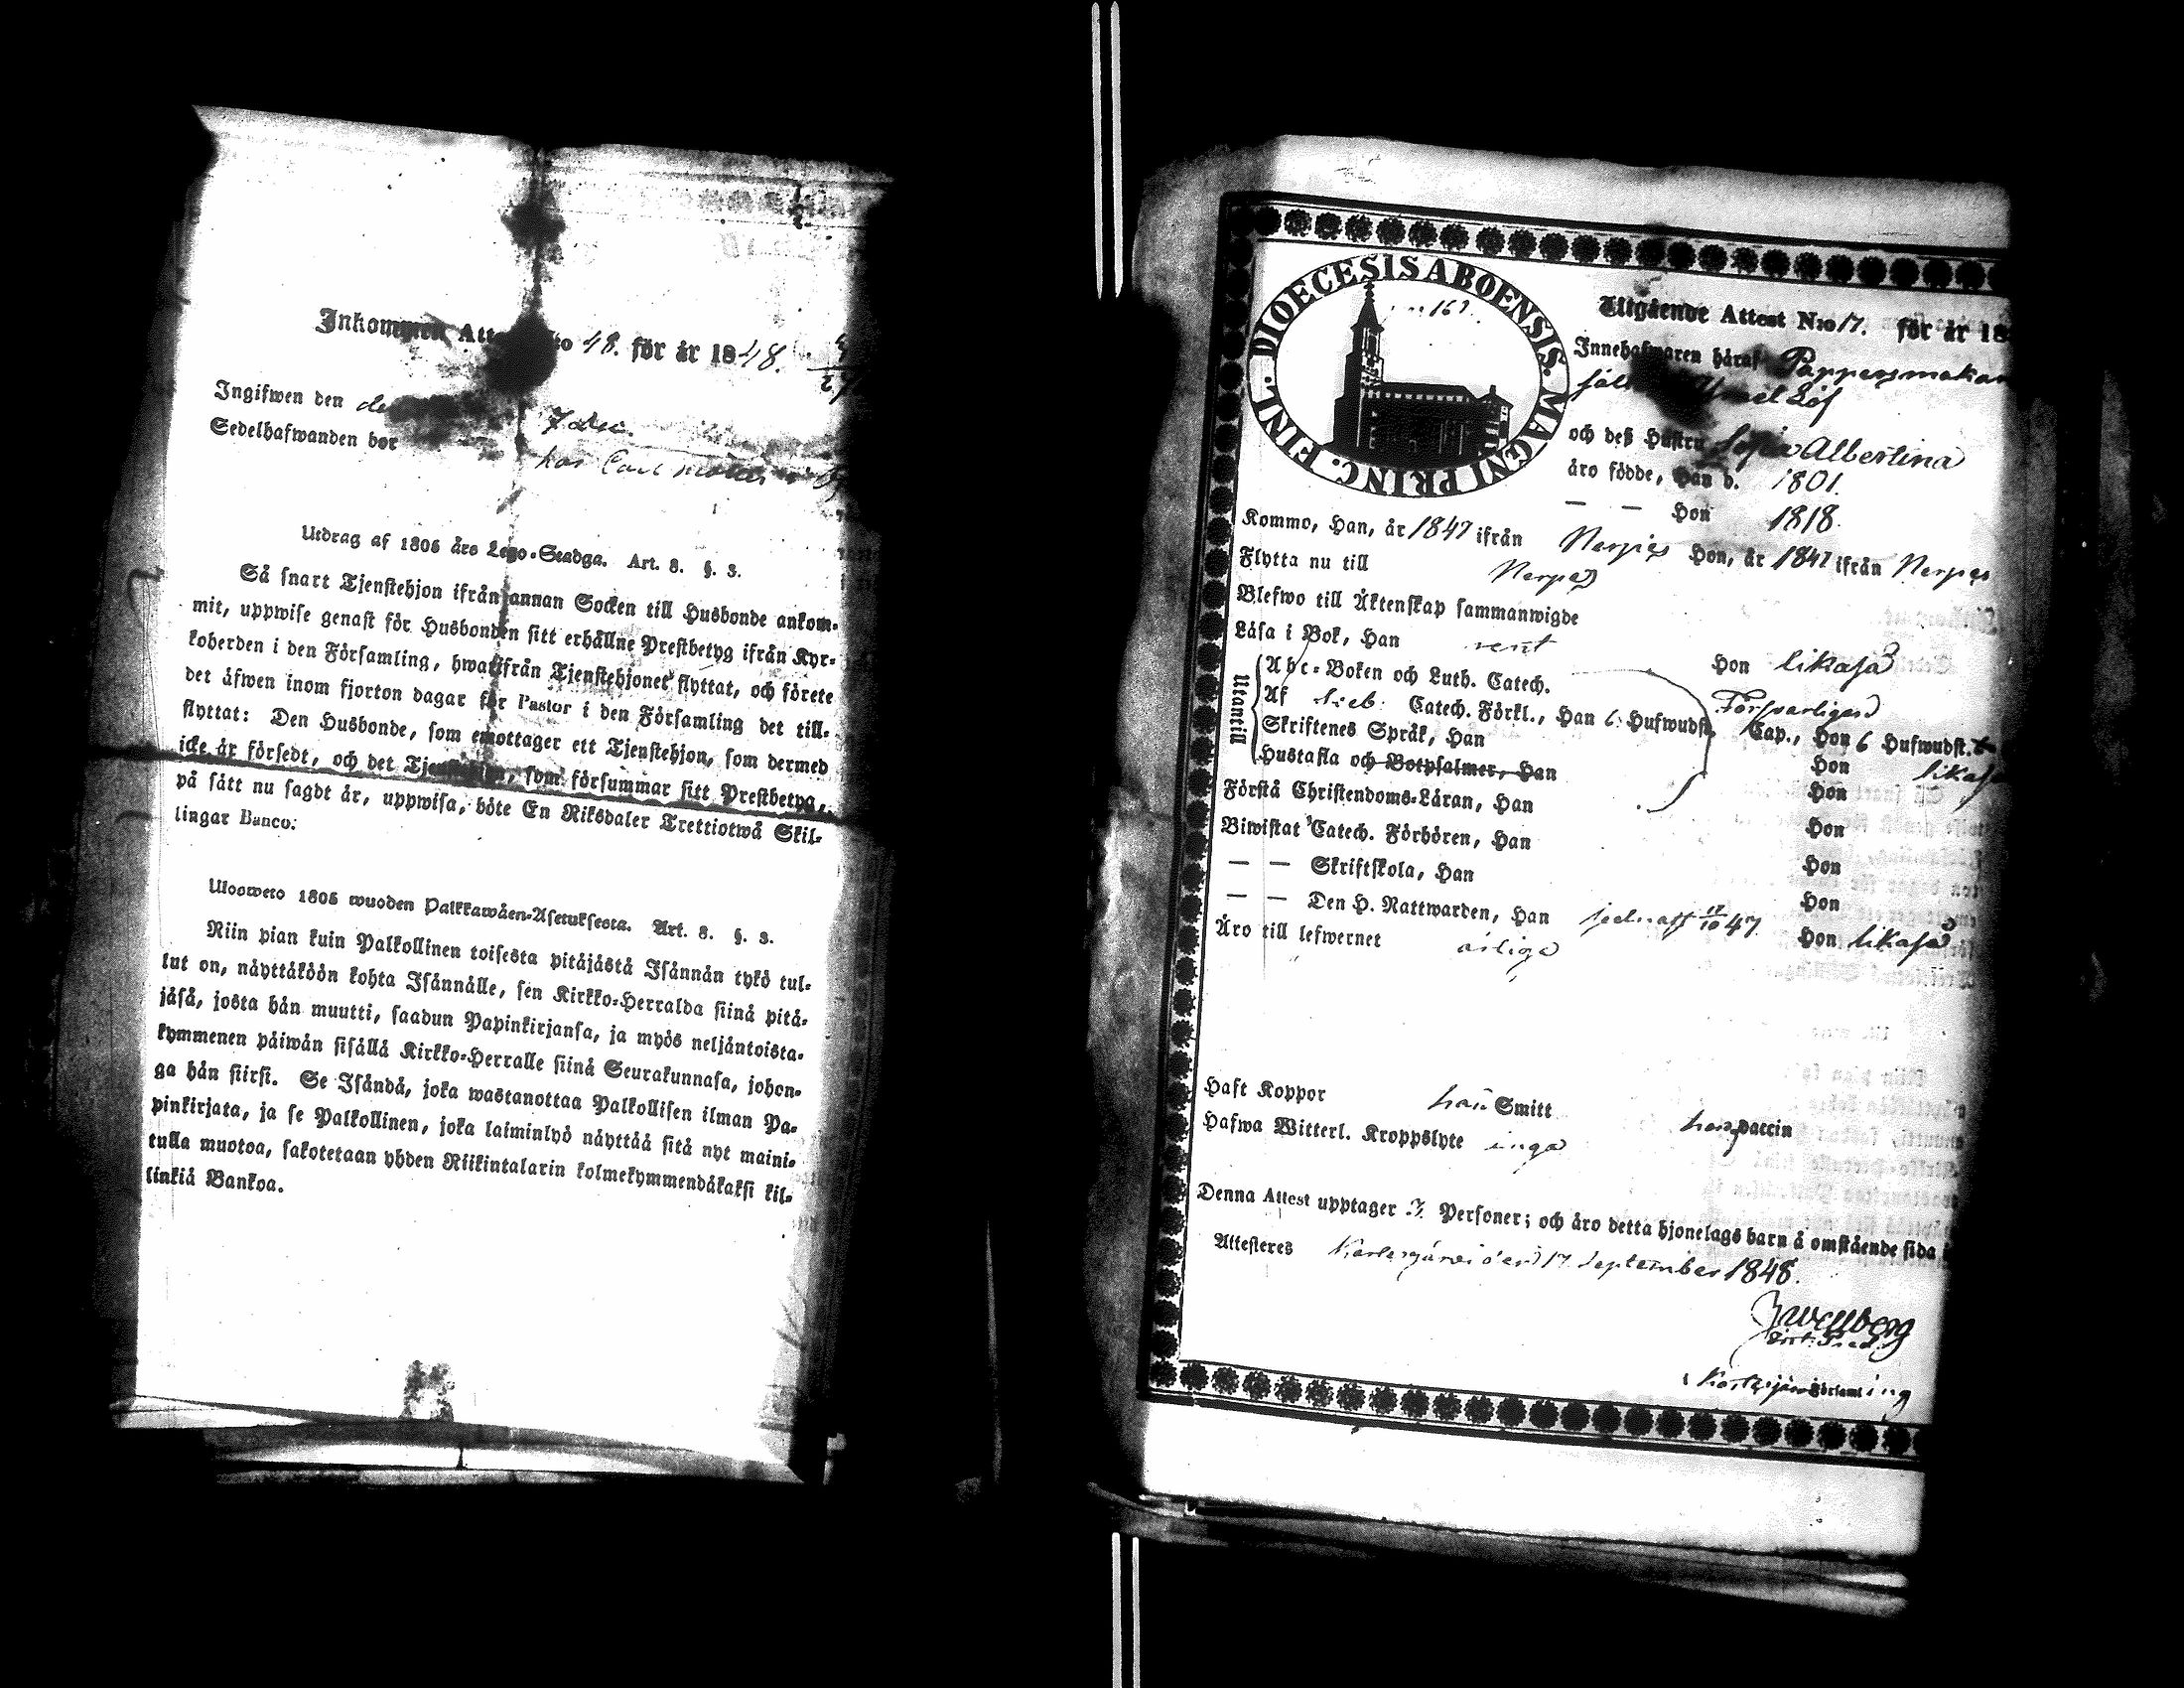 Inkommen Att to 48. för år 1848.
Ingifwen den 7 dec.
Sedelhafwanden bor hos Carl
Utdrag af 1805 års Lego-Stadga. Art. 8. §. 3.
Så snart Tjenstehjon ifrån annan Socken till Husbonde ankom-
mit, uppwise genast för Husbonden sitt erhållne Prestbetyg ifrån Kyr-
koherden i den Församling, hwarifrån Tjenstehjonet flyttat, och förete
det äfwen inom fjorton dagar för Pastor i den Församling det till-
flyttat: Den Husbonde, som emottager ett Tjenstehjon, som dermed
icke är försedt, och det Tjenstehjon, som försummar sitt Prestbetyg,
på sätt nu sagdt är, uppwisa, böte En Riksdaler Trettiotwå Skil-
lingar Banco.
Uloosweto 1805 wuoden Palkkawäen-Asetuksesta. Art. 8. §. 3.
Niin pian kuin Palkollinen toisesta pitäjästä Isännän tykö tul-
lut on, näyttäköön kohta Isännälle, sen Kirkko-Herralda siinä pitä-
jäsä, josta hän muutti, saadun Papinkirjansa, ja myös neljäntoista-
kymmenen päiwän sisällä Kirkko-Herralle siinä Seurakunnasa, johon-
ga hän siirsi. Se Isändä, joka wastanottaa Palkollisen ilman Pa-
pinkirjata, ja se Palkollinen, joka laiminlyö näyttää sitä nyt maini-
tulla muotoa, sakotetaan yhden Riikintalarin kolmekymmendäkaksi kil-
linkiä Bankoa.
DIOECESIS ABOENSIS. MAGNI PRINC. FINL.
167.
Utgående Attest N:o 17. för år 18
Innehafwaren häraf Pappersmakar
Löf
och deß Hustru Sofia Albertina
äro födde, Han d. 1801.
— — Hon 1818.
Kommo, Han, år 1847 ifrån Nerpes Hon, år 1847 ifrån Nerpes
Flytta nu till Nerpes
Blefwo till Äktenskap sammanwigde
Läsa i Bok, Han rent Hon likaså
Utantill
Abc-Boken och Luth. Catech. Försvarligen
Af Sveb: Catech. Förkl., Han 6 Hufwudst. Cap., Hon 6 Hufwudst.
Skriftenes Språk, Han Hon likaså
Hustafla och Botpsalmer, Han Hon
Förstå Christendoms-Läran, Han Hon
Biwistat Catech. Förhören, Han Hon
— — Skriftskola, Han Hon
— — Den H. Nattwarden, Han 17/10 47 Hon likaså
Äro till lefwernet ärliga
Haft Koppor han Smitt hon Vaccin
Hafwa Witterl. Kroppslyte inga
Denna Attest upptager Personer; och äro detta hjonelags barn å omstående sida
Attesteres Kortesjärvi den 17 September 1848.
Wellberg
Kortesjärvi Församling